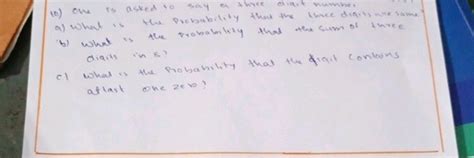 10) One is asked to say a three digit number
a) what is the Probability that the three digits are same
b) what is the probability that the sum of three
digits is
c) what is the Probability that the digit contains
atlast one zero?